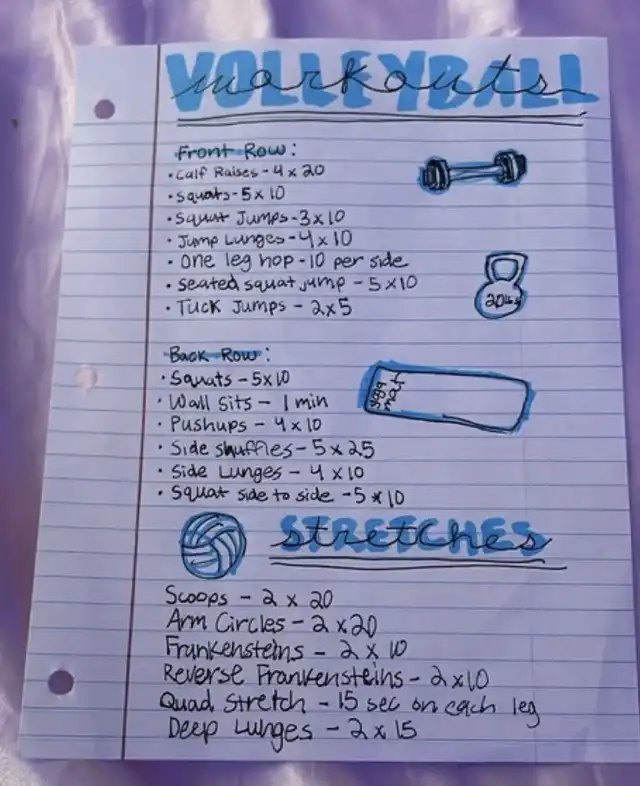 VOLLEYBALL
workouts
Front Row:
• Calf Raises - 4 x 20
• Squats - 5 x 10
• Squat Jumps - 3 x 10
• Jump Lunges - 4 x 10
• One leg hop - 10 per side
• Seated squat jump - 5 x 10
• Tuck Jumps - 2 x 5
20lbs
Back Row:
• Squats - 5 x 10
• Wall Sits - 1 min
• Pushups - 4 x 10
• Side shuffles - 5 x 25
• Side Lunges - 4 x 10
• Squat side to side - 5 x 10
yoga
mat
STRETCHES
stretches
Scoops - 2 x 20
Arm Circles - 2 x 20
Frankensteins - 2 x 10
Reverse Frankensteins - 2 x 10
Quad Stretch - 15 sec on each leg
Deep Lunges - 2 x 15